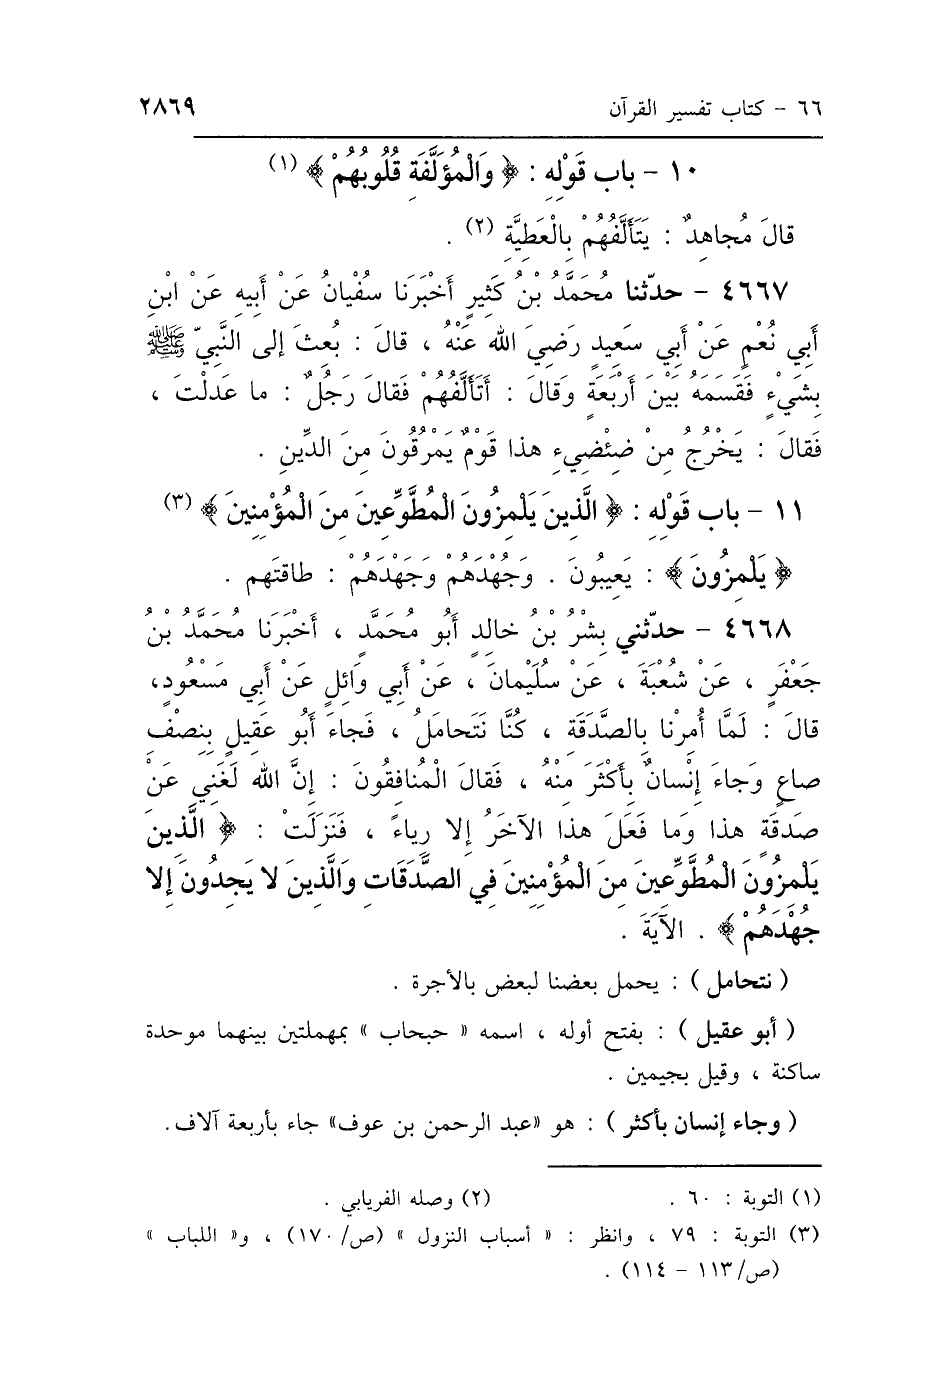 ٦٦ - كتاب تفسير القرآن ٢٨٦٩
١٠ - باب قَوْلِهِ : ﴿ وَالْمُؤَلَّفَةِ قُلُوبُهُمْ ﴾ (١)
قالَ مُجاهِدٌ : يَتَأَلَّفُهُمْ بِالْعَطِيَّةِ (٢) .
٤٦٦٧ - حدّثنا مُحَمَّدُ بْنُ كَثِيرٍ أَخْبَرَنَا سُفْيانُ عَنْ أَبِيهِ عَنْ ابْنِ
أَبِي نُعْمٍ عَنْ أَبِي سَعِيدٍ رَضِيَ الله عَنْهُ ، قالَ : بُعِثَ إلى النَّبِيّ ﷺ
بِشَيْءٍ فَقَسَمَهُ بَيْنَ أَرْبَعَةٍ وَقَالَ : أَتَأَلَّفُهُمْ فَقالَ رَجُلٌ : ما عَدَلْتَ ،
فَقالَ : يَخْرُجُ مِنْ ضِئْضِيءِ هذا قَوْمٌ يَمْرُقُونَ مِنَ الدِّينِ .
١١ - باب قَوْلِهِ : ﴿ الَّذِينَ يَلْمِزُونَ الْمُطَّوِّعِينَ مِنَ الْمُؤْمِنِينَ ﴾ (٣)
﴿ يَلْمِزُونَ ﴾ : يَعِيبُونَ . وَجُهْدَهُمْ وَجَهْدَهُمْ : طاقَتَهم .
٤٦٦٨ - حدّثني بِشْرُ بْنُ خالِدٍ أَبُو مُحَمَّدٍ ، أَخْبَرَنَا مُحَمَّدُ بْنُ
جَعْفَرٍ ، عَنْ شُعْبَةَ ، عَنْ سُلَيْمانَ ، عَنْ أَبِي وَائِلٍ عَنْ أَبِي مَسْعُودٍ،
قالَ : لَمَّا أُمِرْنا بِالصَّدَقَةِ ، كُنَّا نَتَحامَلُ ، فَجاءَ أَبُو عَقِيلٍ بِنِصْفِ
صاعٍ وَجاءَ إِنْسانٌ بِأَكْثَرَ مِنْهُ ، فَقالَ الْمُنافِقُونَ : إِنَّ الله لَغَنِي عَنْ
صَدَقَةِ هذا وَما فَعَلَ هذا الآخَرُ إلا رِياءً ، فَنَزَلَتْ : ﴿ الَّذِينَ
يَلْمِزُونَ الْمُطَّوِّعِينَ مِنَ الْمُؤْمِنِينَ فِي الصَّدَقَاتِ وَالَّذِينَ لا يَجِدُونَ إلا
جُهْدَهُمْ ﴾ . الآيَةَ .
( نتحامل ) : يحمل بعضنا لبعض بالأجرة .
( أبو عقيل ) : بفتح أوله ، اسمه « حبحاب » بمهملتين بينهما موحدة
ساكنة ، وقيل بجيمين .
( وجاء إنسان بأكثر ) : هو «عبد الرحمن بن عوف» جاء بأربعة آلاف.
(١) التوبة : ٦٠ . (٢) وصله الفريابي .
(٣) التوبة : ٧٩ ، وانظر : « أسباب النزول » (ص/١٧٠) ، و« اللباب »
(ص/١١٣ - ١١٤) .